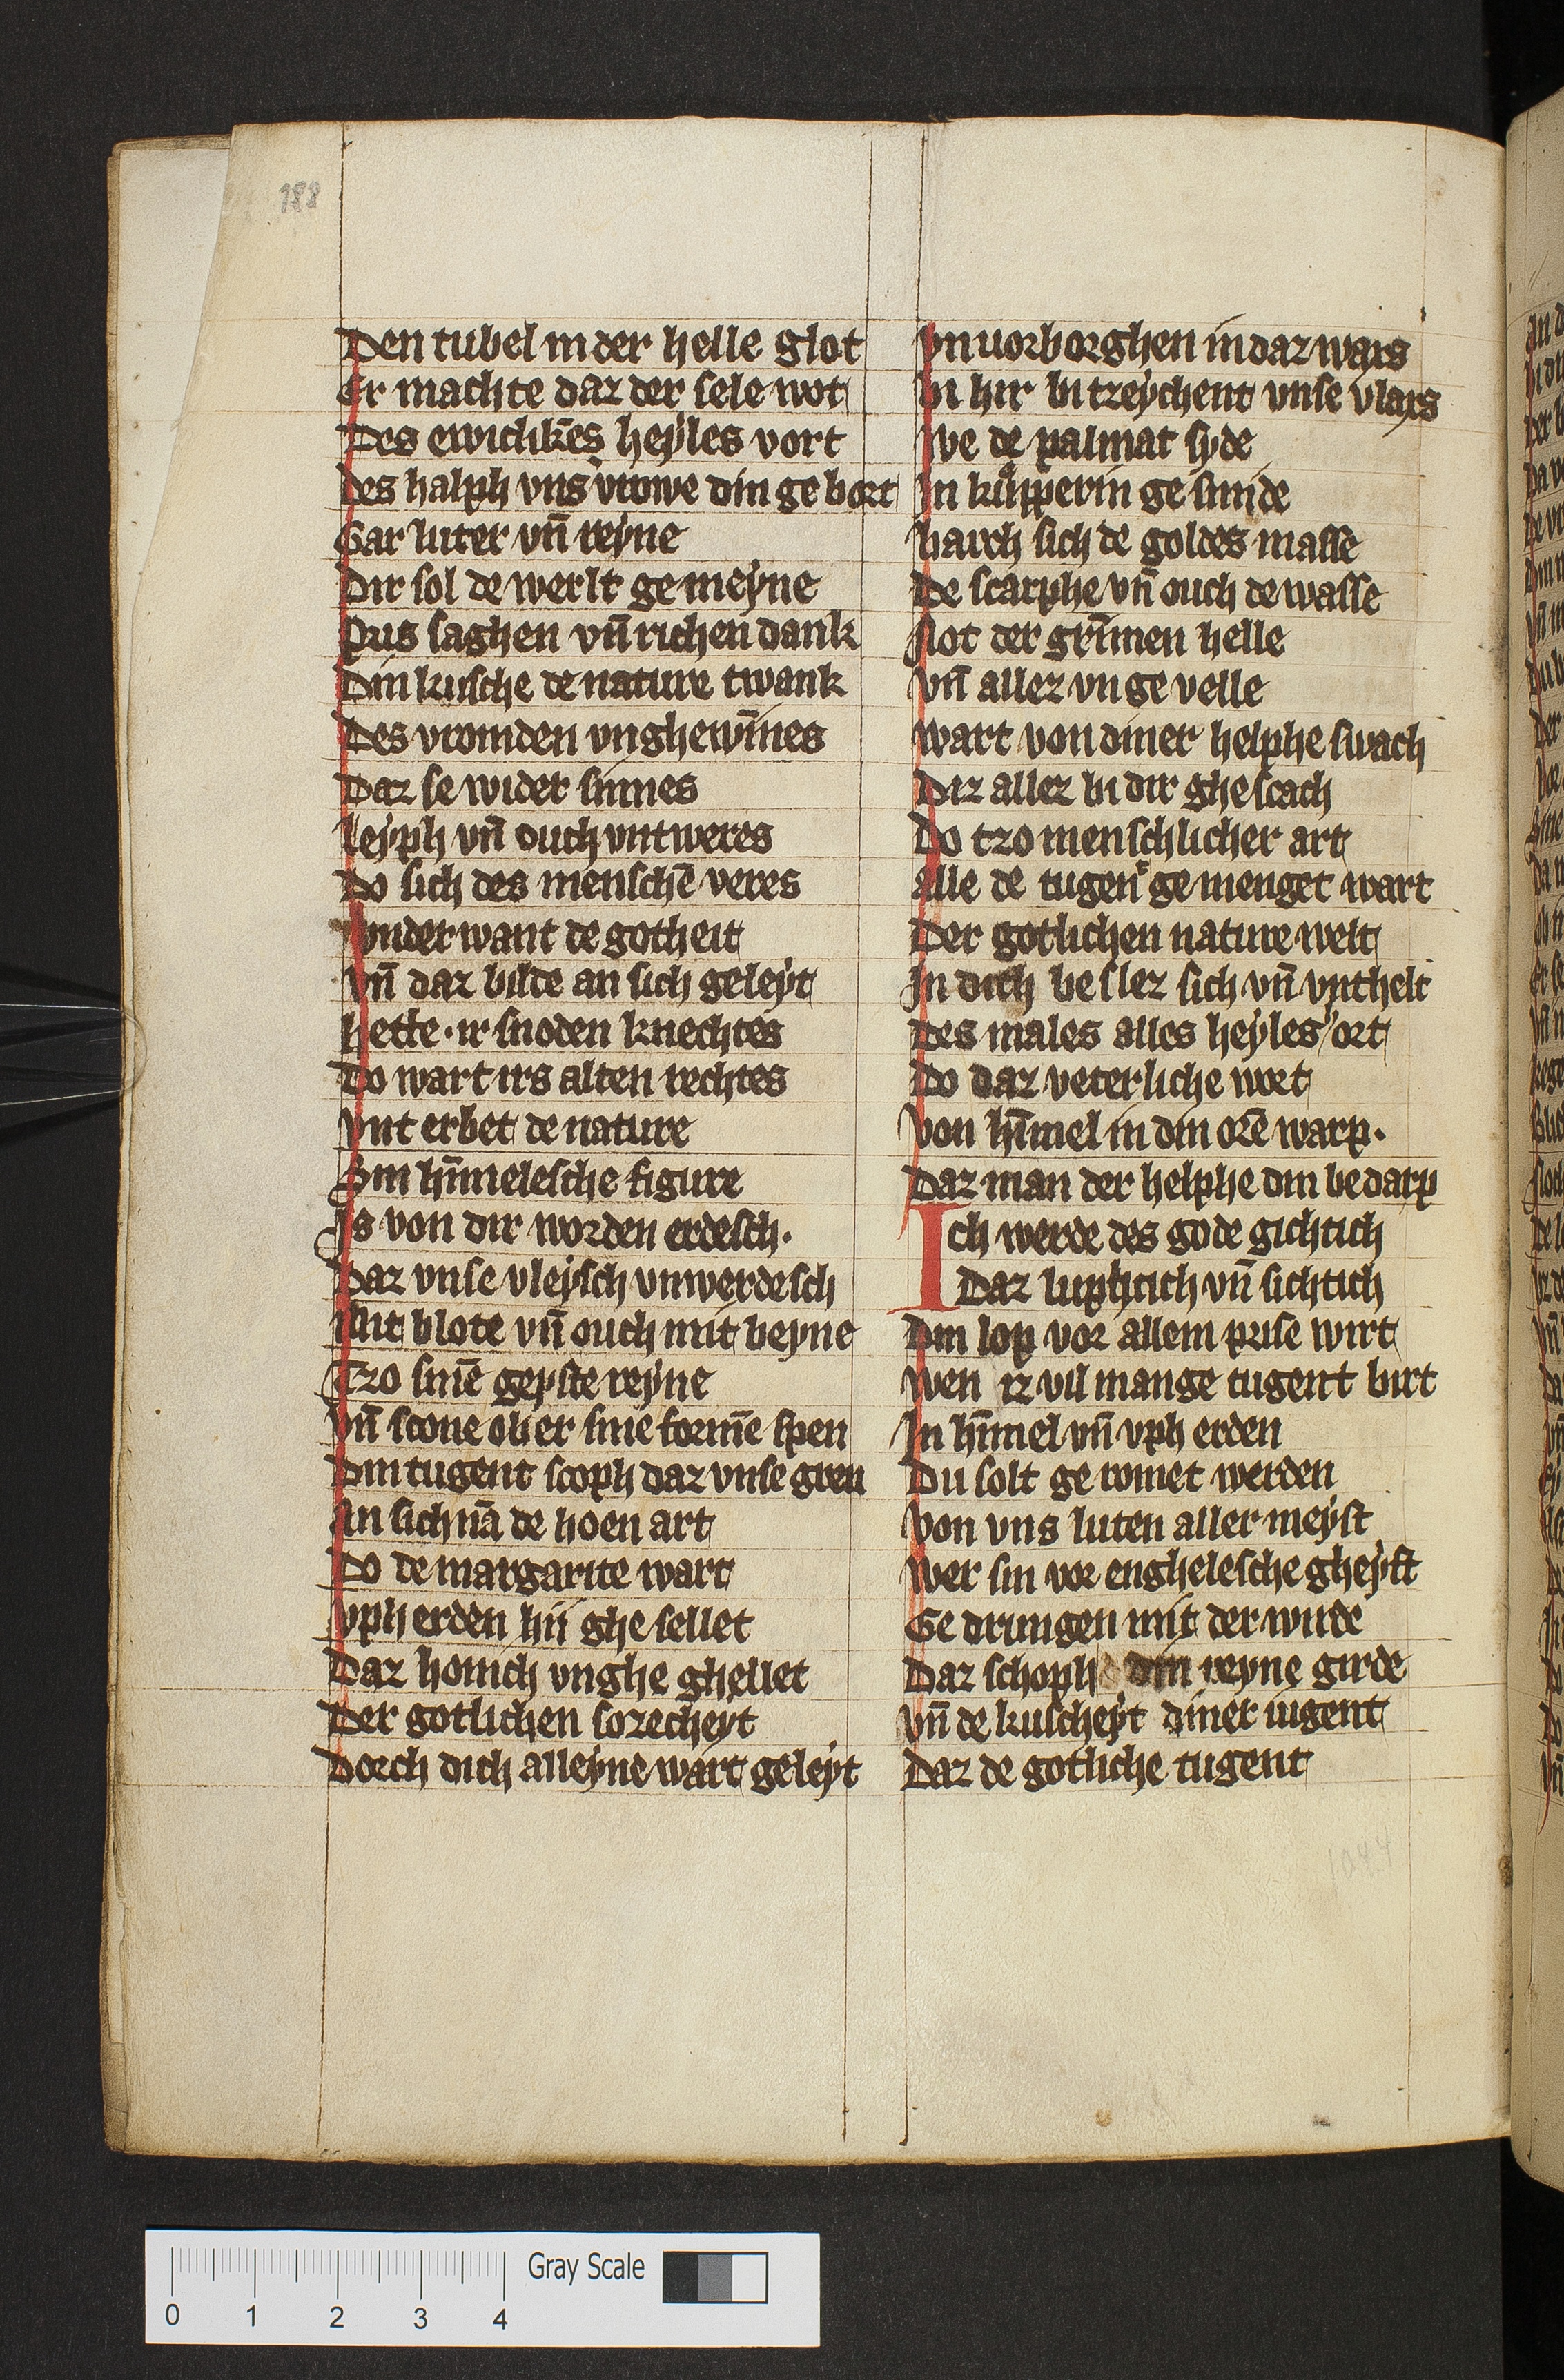 188
Den tubel in der helle glot
Er machte daz der sele wot
Des ewichkēs heyles vort
Des halph vns vrowe din ge bort
Gar luter vn̄ reyne
Dir sol de werlt ge meyne
Prus saghen vn̄ richen dank
Din kusche de nature twank
Des vromden vnghewīnes
Daz se wider sinnes
Leyph vn̄ ouch vntweres
Do sich des menschē veres
Vnder want de gotheit
Vn̄ daz bilde an sich geleyt
Hette · ir snoden knechtes
Do wart irs alten rechtes
Vnt erbet de nature
Sin hīmelesche figure
Is von dir worden erdesch ·
Daz vnse vleysch vnwerdesch
Mit blote vn̄ ouch mit beyne
Tzo sinē geyste reyne
Vn̄ scone ob er sine formē spen
Din tugent scoph daz vnse gren
An sich nā de hoen art
Do de margarite wart
Vph erden hii ghe sellet
Daz honich vnghe ghellet
Der gotlichen sozecheyt
Dorch dich alleyne wart geleyt
Vnuorborghen in daz wars
Bi hir bi tzeychent vnse vlars
We de palmat syde
In kupperin ge sinide
Barch sich de goldes masse
De scarphe vn̄ ouch de wasse
Slot der grīmen helle
Vn̄ allez vn ge velle
Wart von diner helphe swach
Diz allez bi dir ghe scach
Do tzo menschlicher art
Alle de tugen ge menget wart
Der gotlichen nature welt
In dich be slez sich vn̄ vnthelt
Des males alles heyles ort
Do daz veterliche wort
Von hīmel in din orē warp ·
Daz man der helphe din bedarp
Ich werde des gode gichtich
Daz luphtich vn̄ sichtich
Din lop vor allem prise wirt
Wen iz vil mange tugent birt
In hīmel vn̄ vph erden
Du solt ge romet werden
Von vns luten aller meyst
Wer sin vor enghelesche gheyst
Ge drungen mit der wirde
Daz schoph din reyne girde
Vn̄ de kuscheyt diner iugent
Daz de gotliche tugent
1044
Gray Scale
0 1 2 3 4